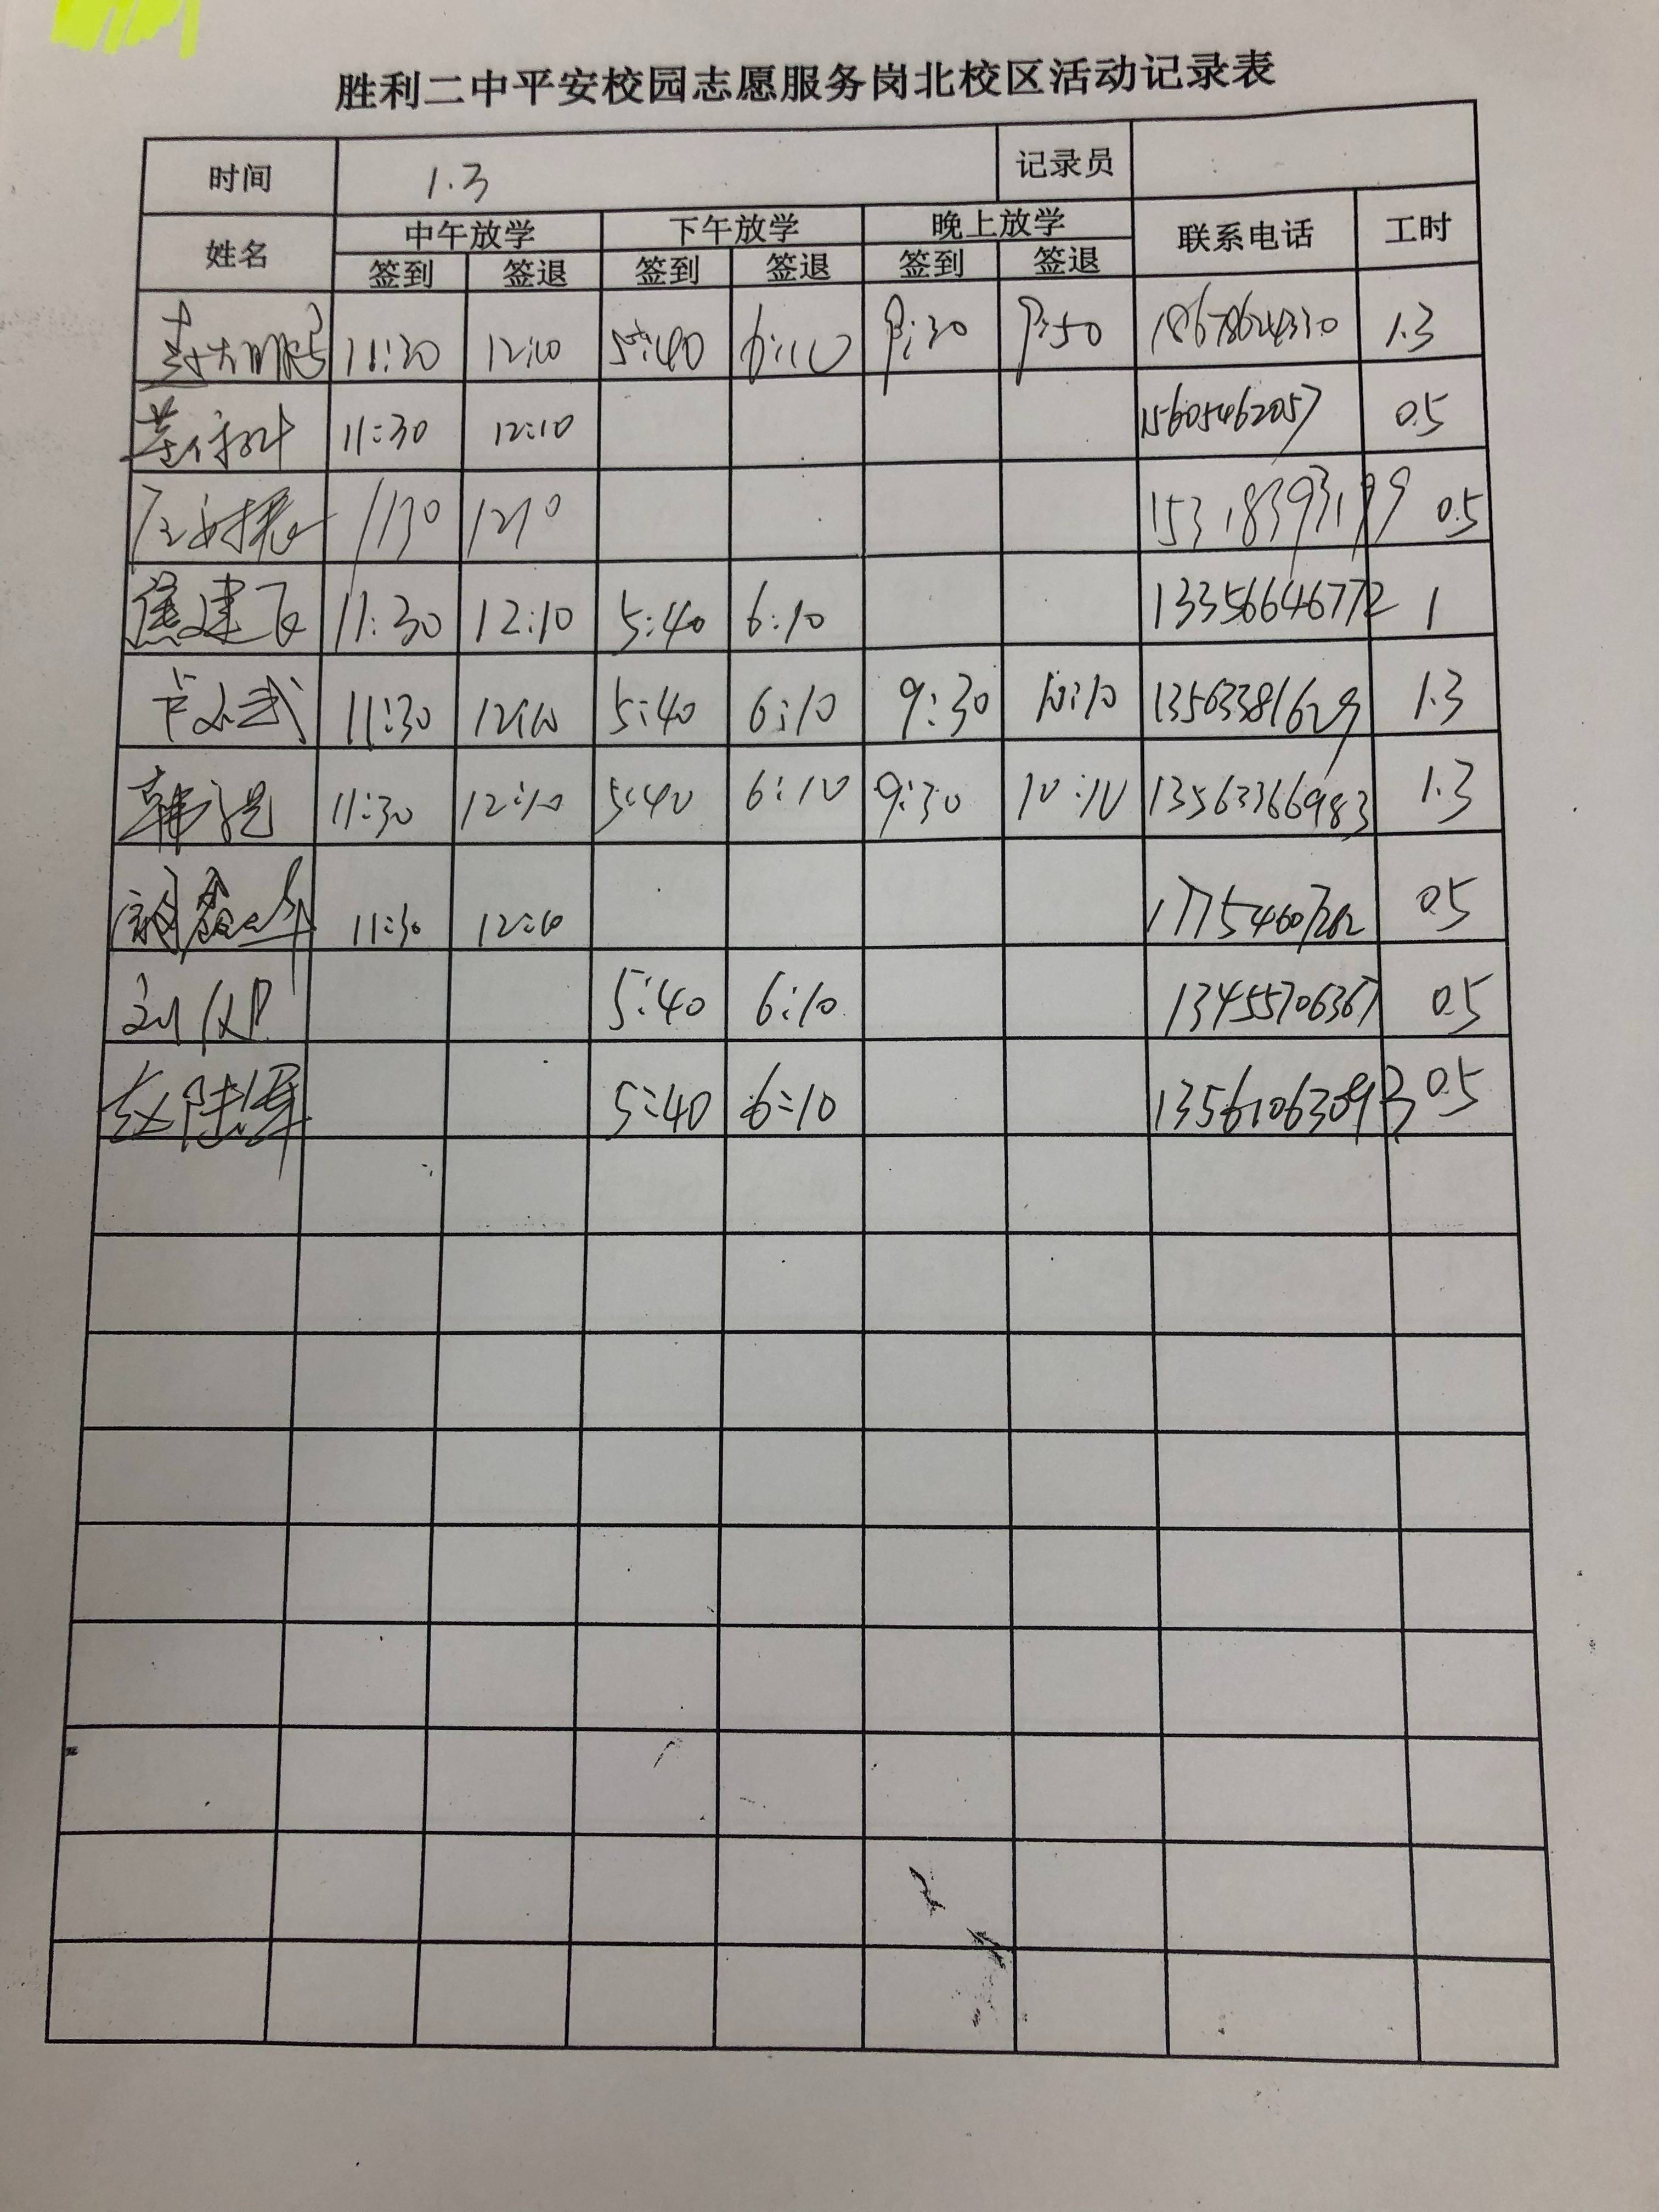 胜利二中平安校园志愿服务岗北校区活动记录表
时间 1.3 记录员
姓名 中午放学 下午放学 晚上放学 联系电话 工时
签到 签退 签到 签退 签到 签退
11:30 12:10 5:40 6:10 9:30 9:50 18678624330 1.3
11:30 12:10 15605462057 0.5
1130 1210 15318393199 0.5
焦建飞 11:30 12:10 5:40 6:10 13356646772 1
11:30 12:10 5:40 6:10 9:30 10:10 13563381629 1.3
韩 11:30 12:10 5:40 6:10 9:30 10:10 13563366983 1.3
11:30 12:10 17754607262 0.5
刘 5:40 6:10 13455706367 0.5
赵陆军 5:40 6:10 13561063093 0.5